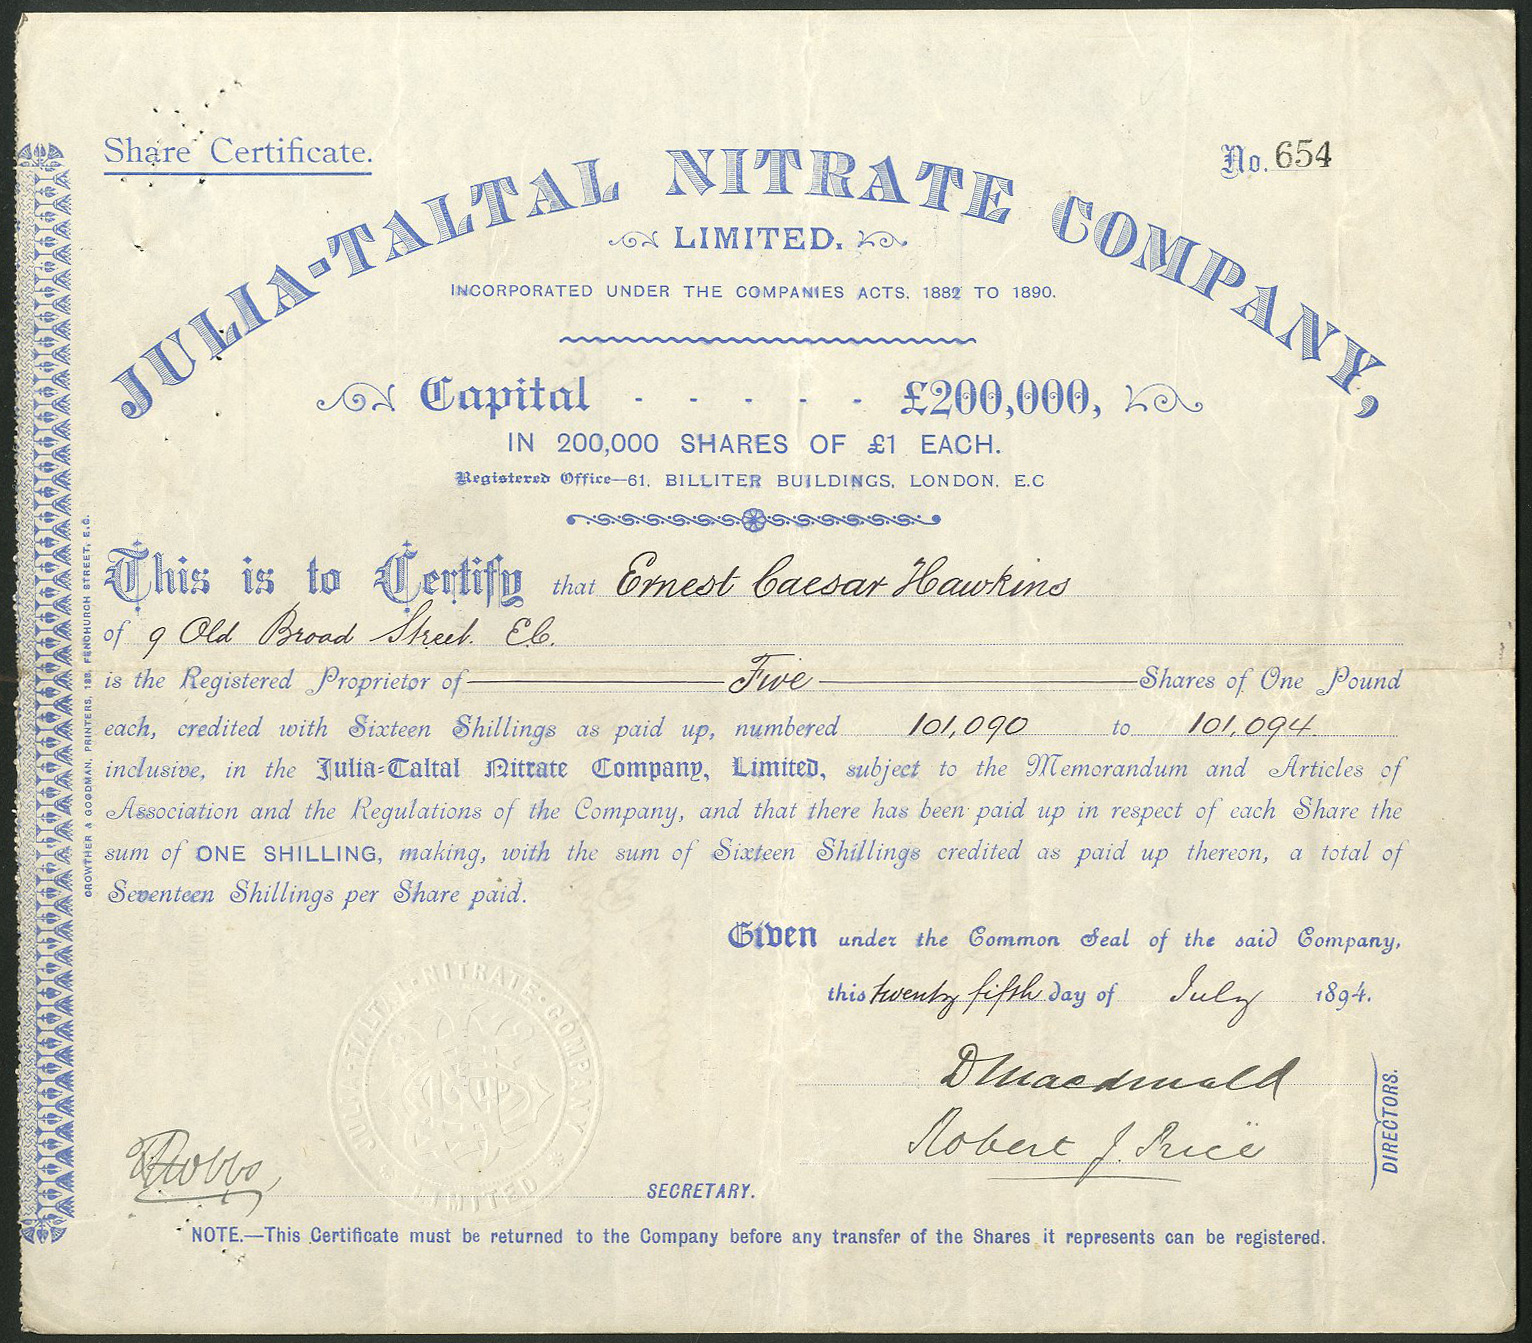 Share Certificate.
No. 654
JULIA-TALTAL NITRATE COMPANY,
LIMITED.
INCORPORATED UNDER THE COMPANIES ACTS, 1882 TO 1890.
Capital - - - - - £200,000,
IN 200,000 SHARES OF £1 EACH.
Registered Office—61, BILLITER BUILDINGS, LONDON, E.C
This is to Certify that Ernest Caesar Hawkins
of 9 Old Broad Street. E.C.
is the Registered Proprietor of Five Shares of One Pound
each, credited with Sixteen Shillings as paid up, numbered 101,090 to 101,094.
inclusive, in the Julia-Taltal Nitrate Company, Limited, subject to the Memorandum and Articles of
Association and the Regulations of the Company, and that there has been paid up in respect of each Share the
sum of ONE SHILLING, making, with the sum of Sixteen Shillings credited as paid up thereon, a total of
Seventeen Shillings per Share paid.
Given under the Common Seal of the said Company,
this twenty fifth day of July 1894.
D Macdonald
Robert J. Price
DIRECTORS.
JULIA-TALTAL-NITRATE-COMPANY
LIMITED
SECRETARY.
NOTE.—This Certificate must be returned to the Company before any transfer of the Shares it represents can be registered.
CROWTHER & GOODMAN, PRINTERS, 188, FENCHURCH STREET, E.C.